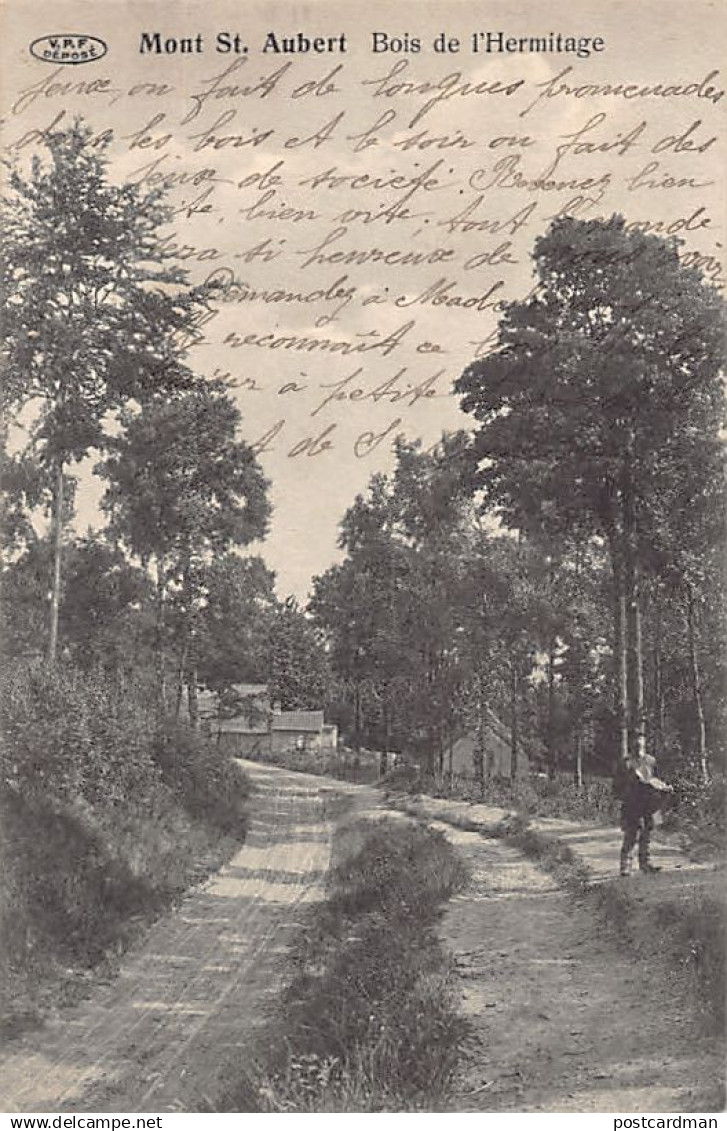 V.P.F.
DÉPOSÉ
Mont St. Aubert Bois de l'Hermitage
jeux, on fait de longues promenades
dans les bois et le soir on fait des
jeux de société. Revenez bien
vite, bien vite, tout le monde
sera si heureux de vous
Demandez à
reconnaît ce
sur à petite
de S
www.delcampe.net
postcardman